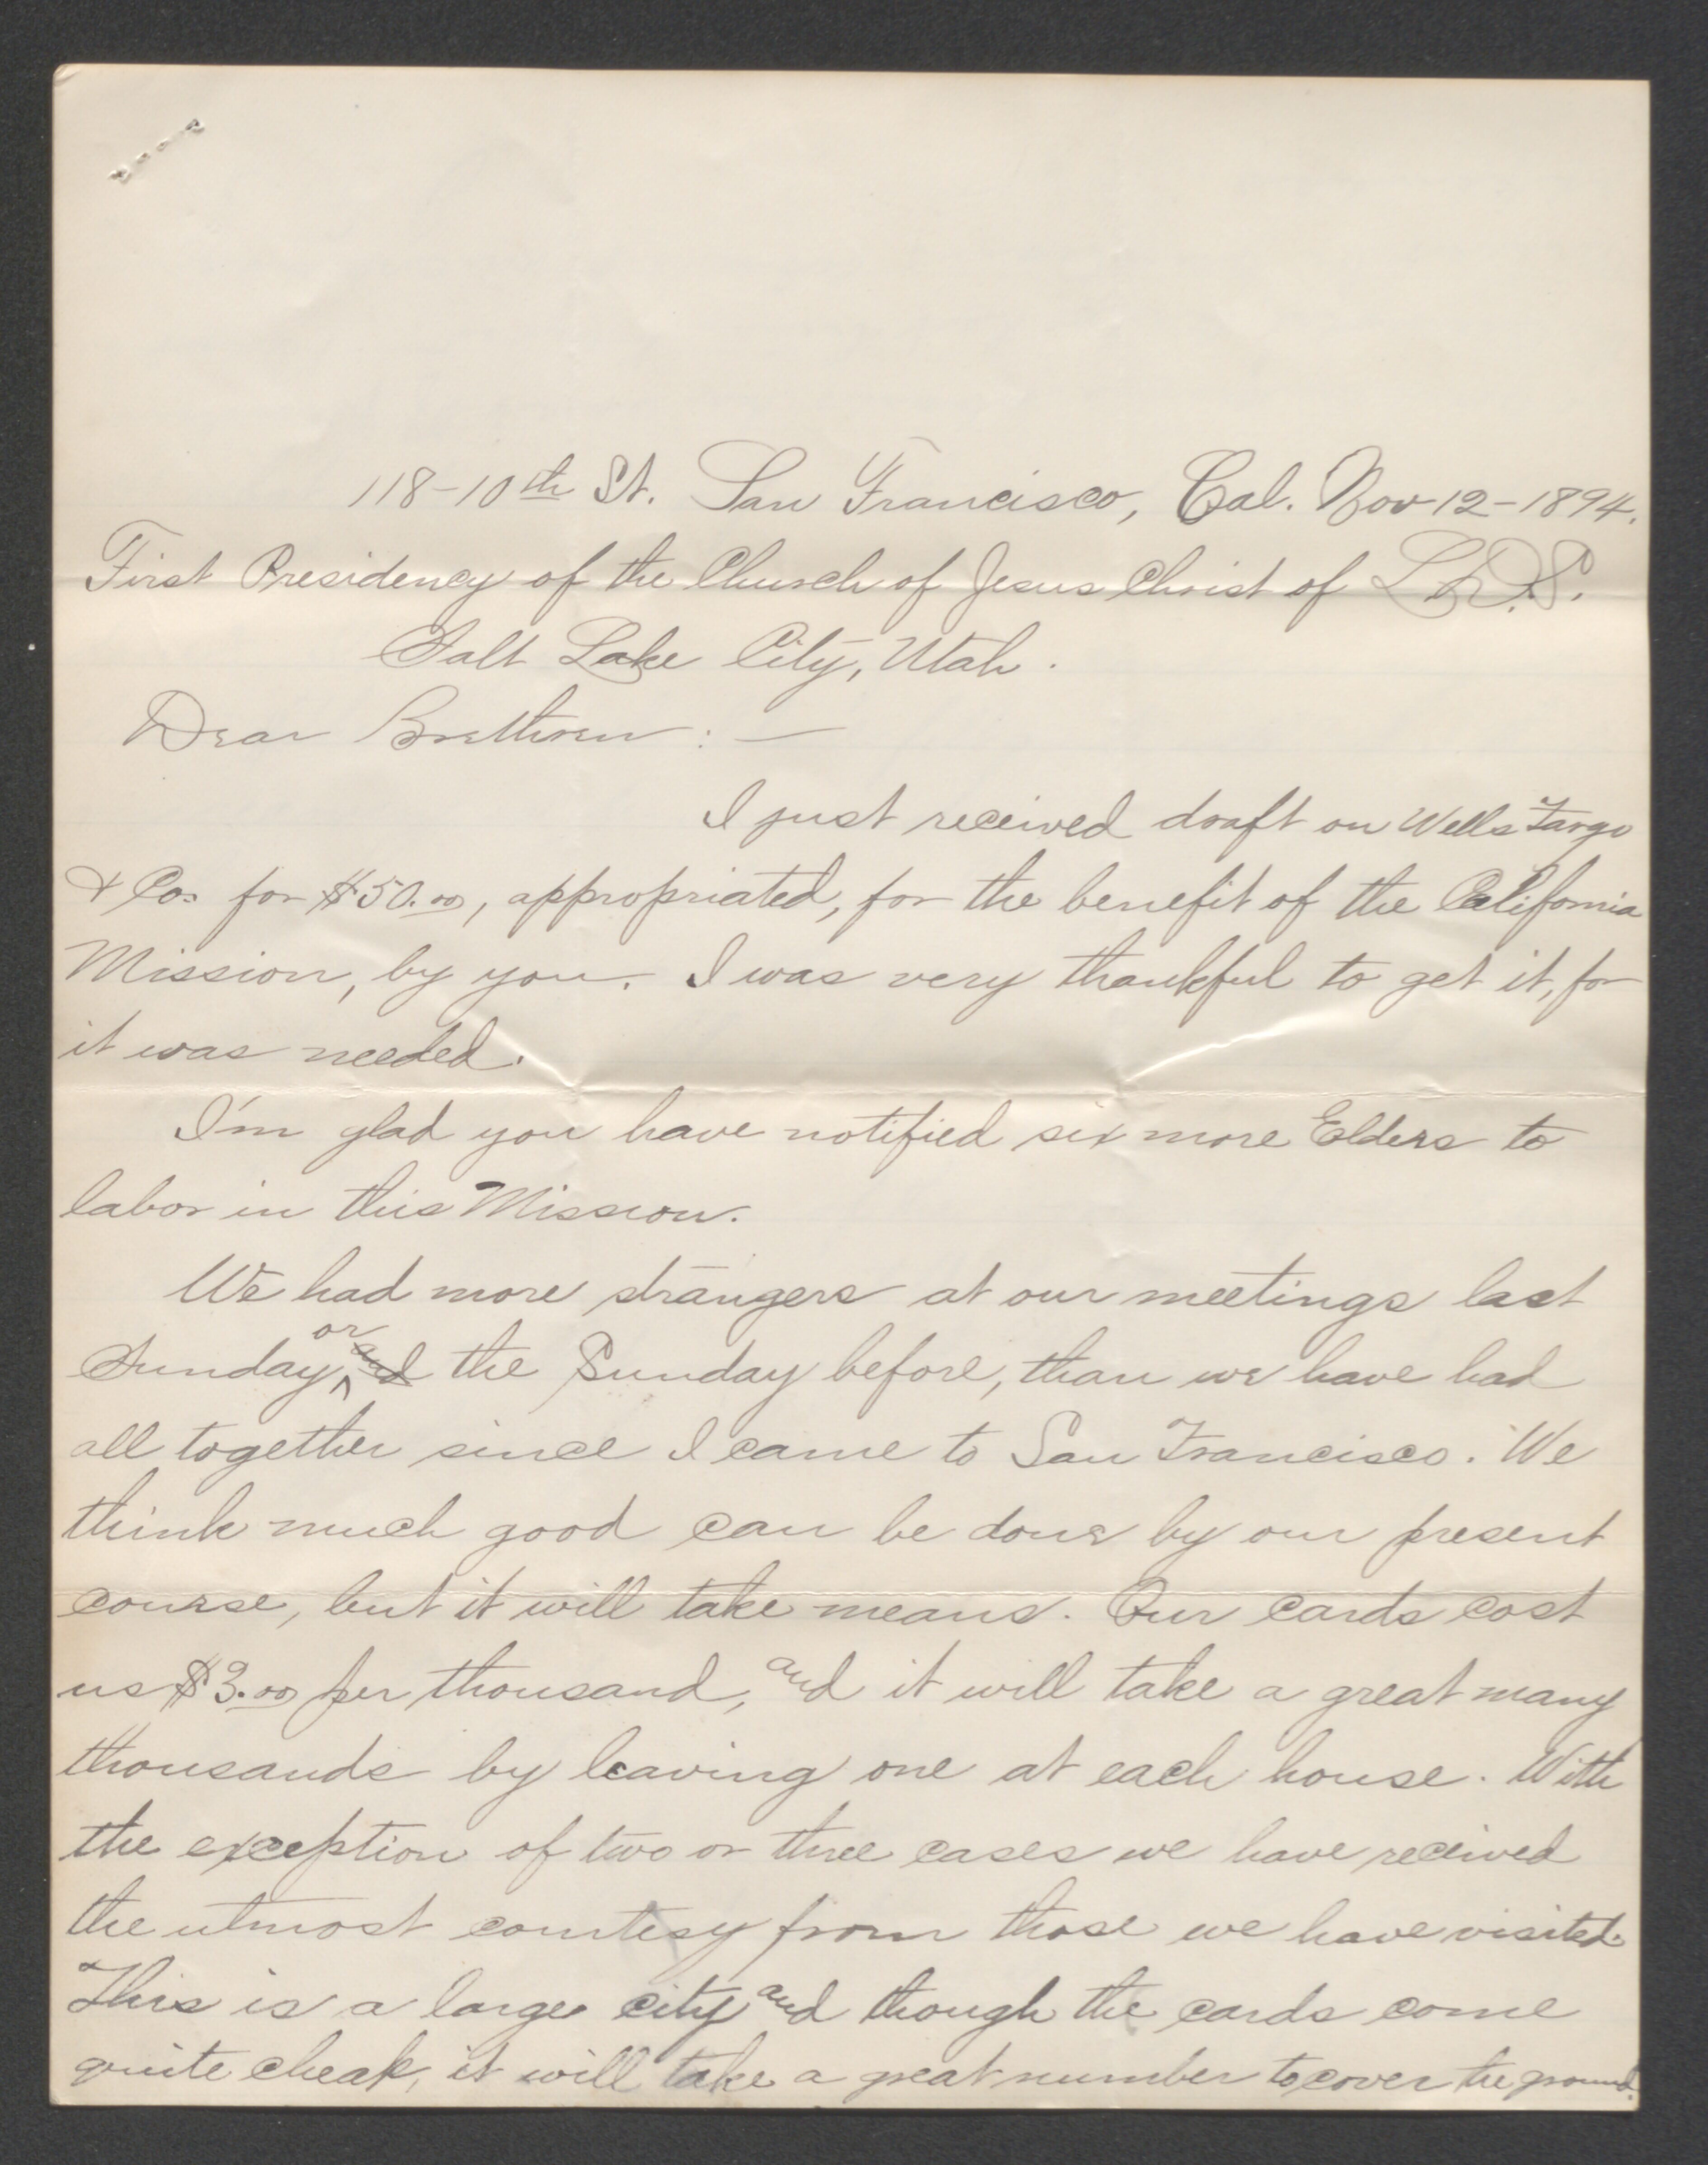 118-10th St. San Francisco, Cal. Nov 12-1894.
First Presidency of the Church of Jesus Christ of L.D.S.
Salt Lake City, Utah.
Dear Brethren: —
I just received draft on Wells Fargo
& Co. for $50.00, appropriated, for the benefit of the California
Mission, by you. I was very thankful to get it, for
it was needed.
I'm glad you have notified six more Elders to
labor in this Mission.
We had more strangers at our meetings last
Sunday, or and the Sunday before, than we have had
all together since I came to San Francisco. We
think much good can be done by our present
course, but it will take means. Our cards cost
us $3.00 per thousand, and it will take a great many
thousands by leaving one at each house. With
the exception of two or three cases we have received
the utmost courtesy from those we have visited.
This is a large city and though the cards come
quite cheap, it will take a great number to cover the ground.